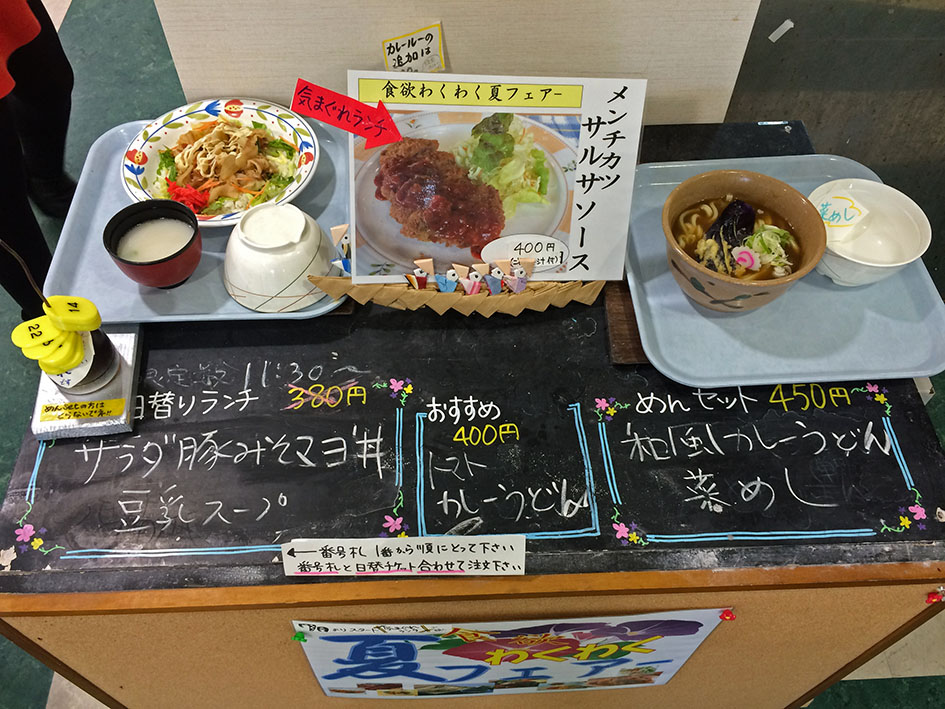 カレールーの
追加は
気まぐれランチ
食欲わくわく夏フェアー
メンチカツ
サルサソース
400円
菜めし
22
めんセットの方は
とらないで下さい!!
限定数 11:30~
日替りランチ 380円
サラダ豚みそマヨ丼
豆乳スープ
おすすめ
400円
トマト
カレーうどん
めんセット 450円
和風カレーうどん
菜めし
←番号札 1番から順にとって下さい
番号札と日替チケット合わせて注文下さい
食欲わくわく
夏フェアー